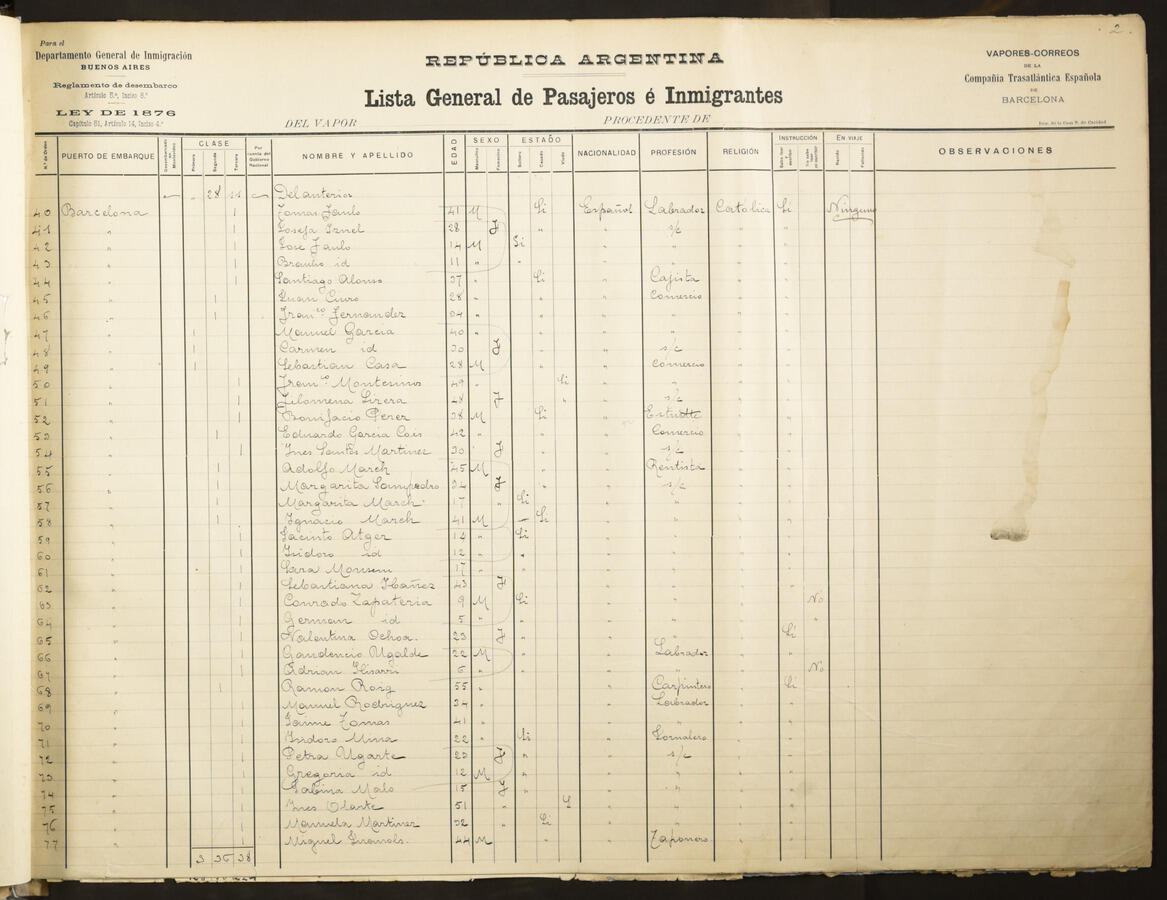 2.
Para el
Departamento General de Inmigración
BUENOS AIRES
Reglamento de desembarco
Artículo 8.°, Inciso 8.°
LEY DE 1876
Capítulo 81, Artículo 14, Inciso 4.°
REPÚBLICA ARGENTINA
Lista General de Pasajeros é Inmigrantes
DEL VAPOR PROCEDENTE DE
VAPORES-CORREOS
DE LA
Compañía Trasatlántica Española
DE
BARCELONA
Imp. de la Casa P. de Caridad
N.° de Orden PUERTO DE EMBARQUE Desembarcado en Montevideo CLASE Primera Segunda Tercera Por cuenta del Gobierno Nacional NOMBRE Y APELLIDO EDAD SEXO Masculino Femenino ESTADO Soltero Casado Viudo NACIONALIDAD PROFESIÓN RELIGIÓN INSTRUCCIÓN Sabe leer y escribir No sabe leer ni escribir EN VIAJE Nacido Fallecido OBSERVACIONES
28 Del anterior
40 Barcelona Tomas 41 M Si Español Labrador Catolica Si Ninguno
41 " Josefa 28 F " " s/c " "
42 " Jose 14 M Si " " " "
43 " Braulio id 11 " " " " " "
44 " Santiago Alonso 37 " Si " Cajista " "
45 " Juan 28 " " " Comercio " "
46 " Fran.co Fernandez 34 " " " " " "
47 " Manuel Garcia 40 " " " " " "
48 " Carmen id 30 F " " s/c " "
49 " Sebastian Casa 28 M " " Comercio " "
50 " Fran.co Montesinos 49 " Si " " " "
51 " Filomena 48 F " " s/c " "
52 " Bonifacio Perez 38 M Si " " "
53 " Eduardo Garcia 42 " " " Comercio " "
54 " Ines Santos Martinez 30 F " " s/c " "
55 " Adolfo March 45 M " " Rentista " "
56 " Margarita Sampedro 34 F " " s/c " "
57 " Margarita March 17 " Si " " " "
58 " Ignacio March 41 M Si " " " "
59 " Jacinto Atger 14 " Si " " " "
60 " Isidoro id 12 " " " " " "
61 " Sara 17 " " " " "
62 " Sebastiana Ibañez 43 F " " " " "
63 " Conrado Zapateria 9 M Si " " " No
64 " German id 5 " " " " " "
65 " Valentina Ochoa. 23 F " " " " Si
66 " Gaudencio Ugalde 22 M " " Labrador " "
67 " Adrian 6 " " " " " No
68 " Ramon Roig 55 " " " Carpintero " Si
69 " Manuel Rodriguez 34 " " " Labrador " "
70 " Jaime Tomas 41 " " " " " "
71 " Isidoro Mina 22 " Si " Jornalero " "
72 " Petra Ugarte 23 F " " s/c " "
73 " Gregoria id 12 M " " " " "
74 " Sabina Malo 15 F " " " " "
75 " Ines Olarte 51 " S " " " "
76 " Manuela Martinez 32 " Si " " " "
77 " Miguel 44 M " " Taponero " "
3 36 38